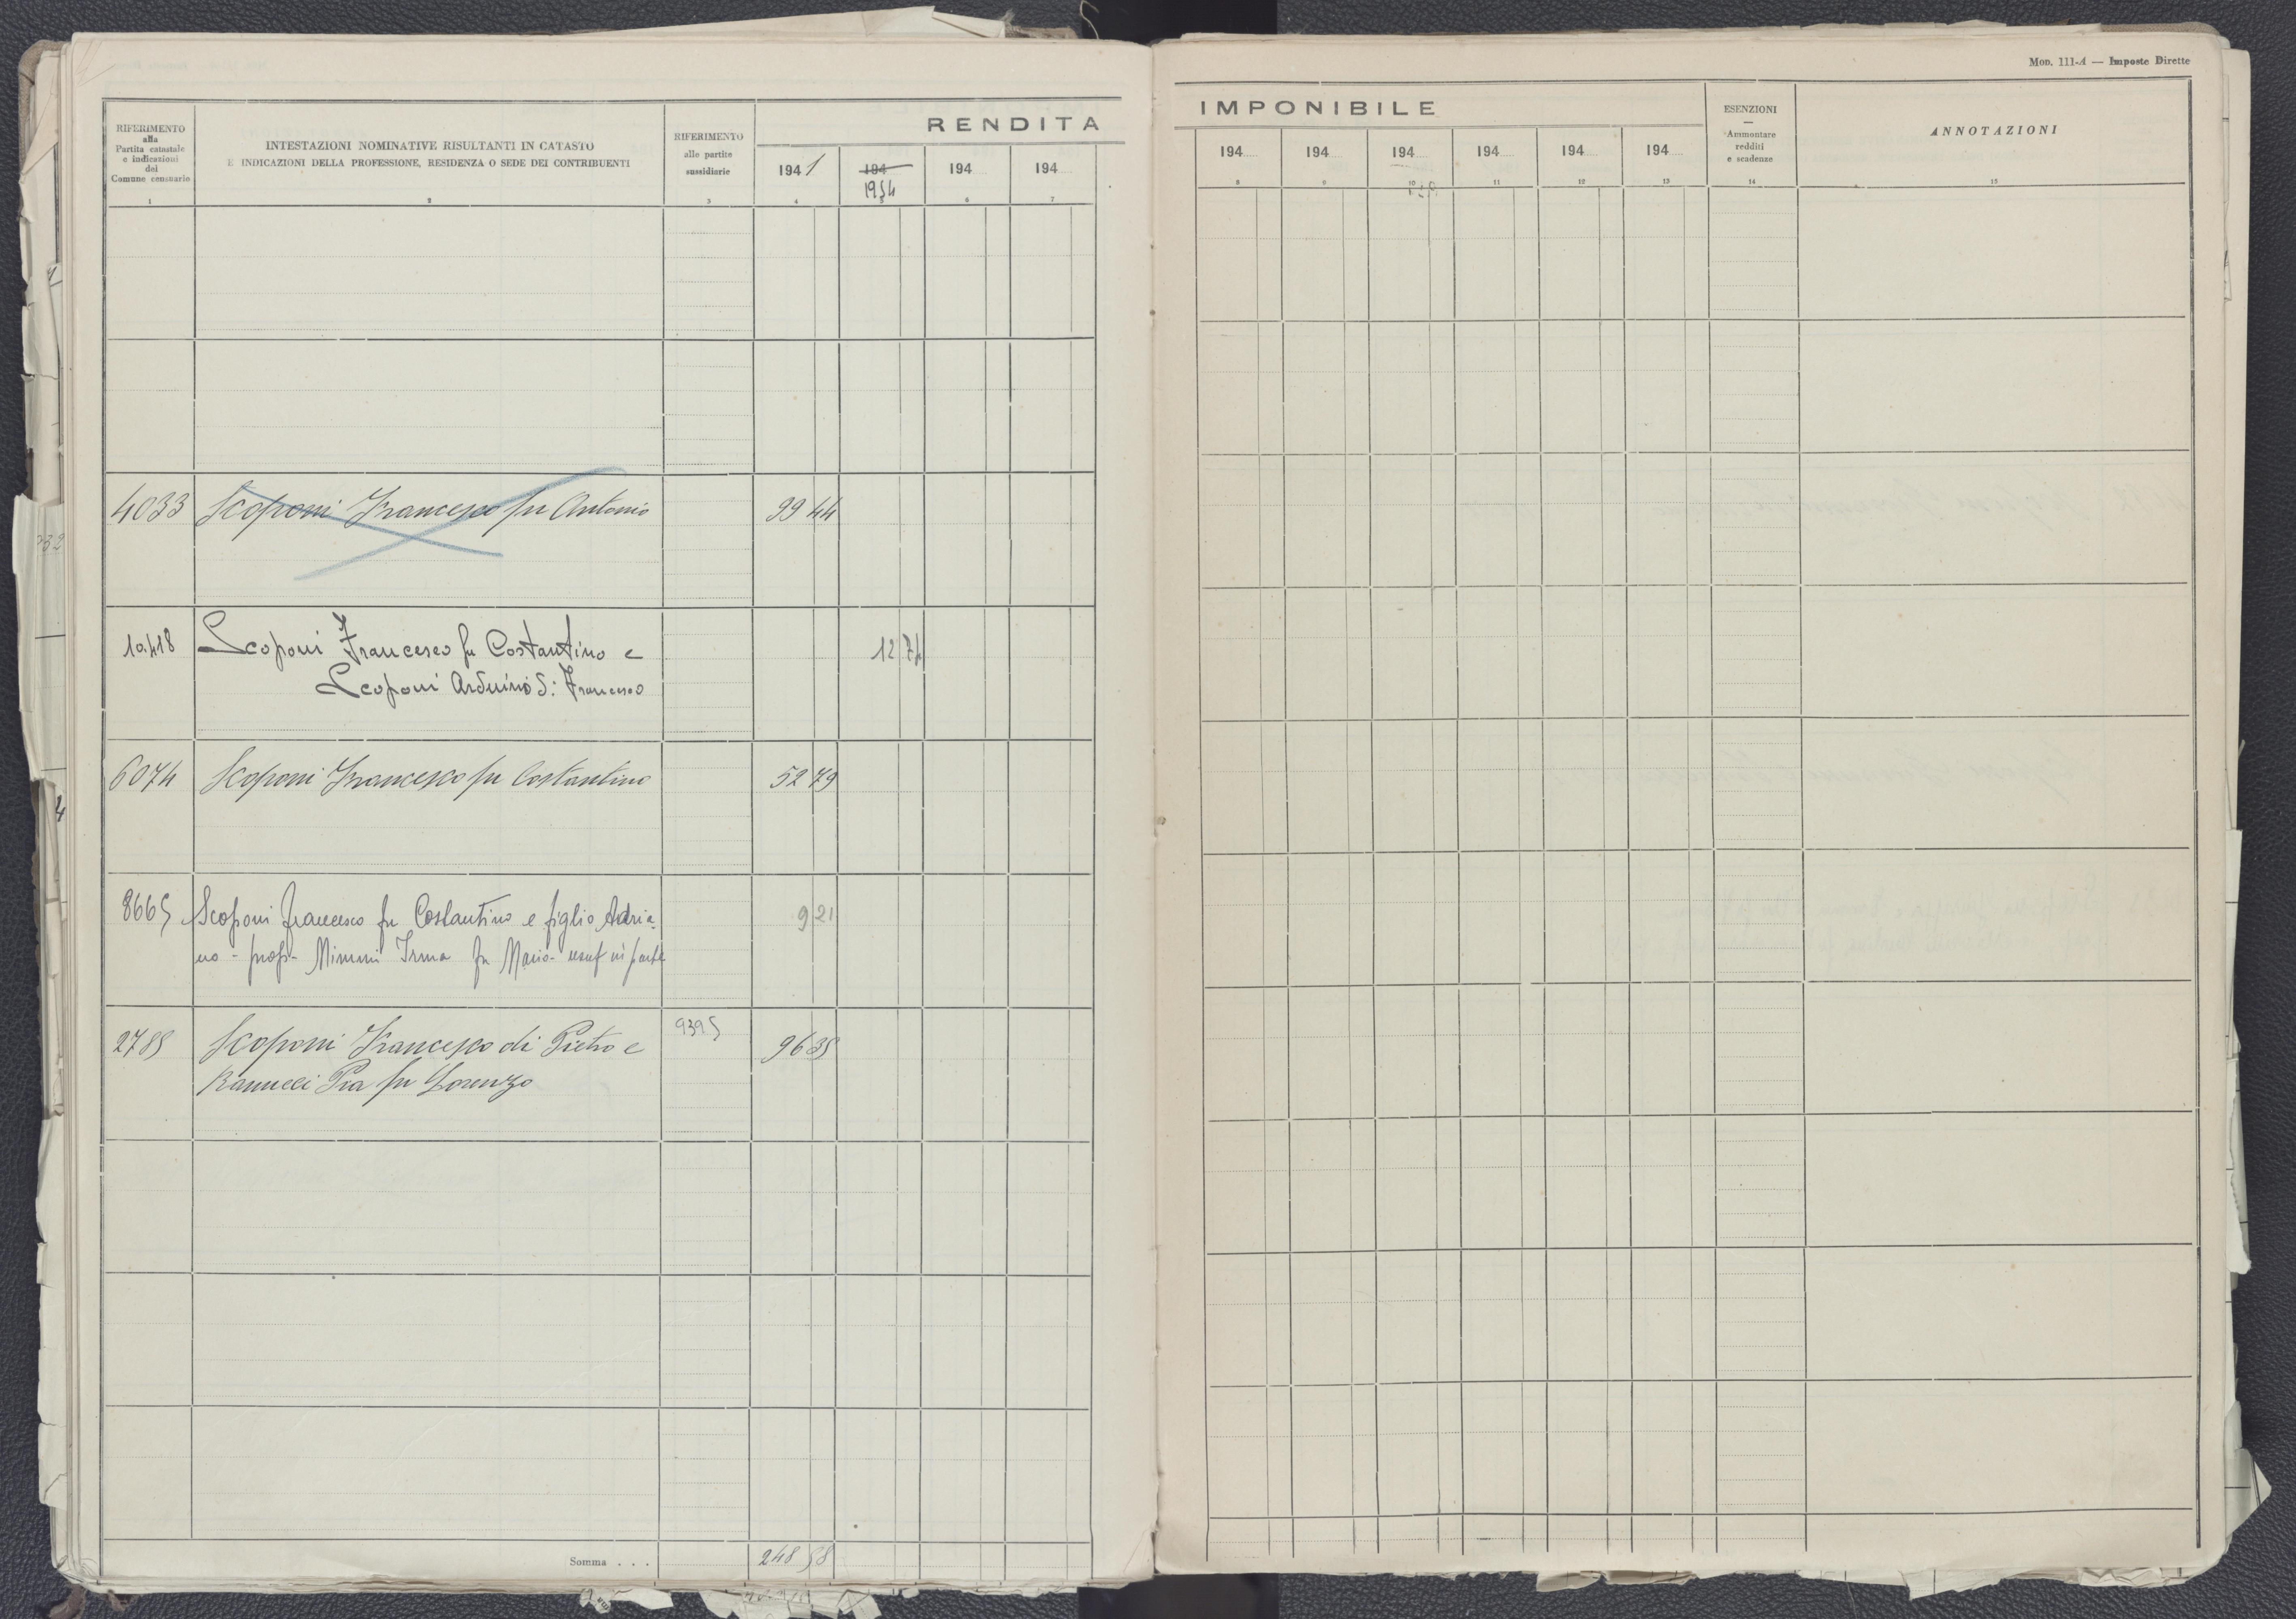 Mod. 111-A — Imposte Dirette
RIFERIMENTO
alla
Partita catastale
e indicazioni
del
Comune censuario
1
INTESTAZIONI NOMINATIVE RISULTANTI IN CATASTO
E INDICAZIONI DELLA PROFESSIONE, RESIDENZA O SEDE DEI CONTRIBUENTI
2
RIFERIMENTO
alle partite
sussidiarie
3
RENDITA
1941
4
194
1954
5
194
6
194
7
IMPONIBILE
194
8
194
9
194
10
194
11
194
12
194
13
ESENZIONI
—
Ammontare
redditi
e scadenze
14
ANNOTAZIONI
15
4033 Scoponi Francesco fu Antonio 99 44
10418 Scoponi Francesco fu Costantino e 12 74
Scoponi Arduino di Francesco
6074 Scoponi Francesco fu Costantino 52 79
8665 Scoponi Francesco fu Costantino e figlio Adria- 9 21
no - prop- Mimmi Irma fu Mario- usuf in parte
2785 Scoponi Francesco di Pietro e 9395 96 35
Ranucci Pia fu Lorenzo
Somma . . . 248 58